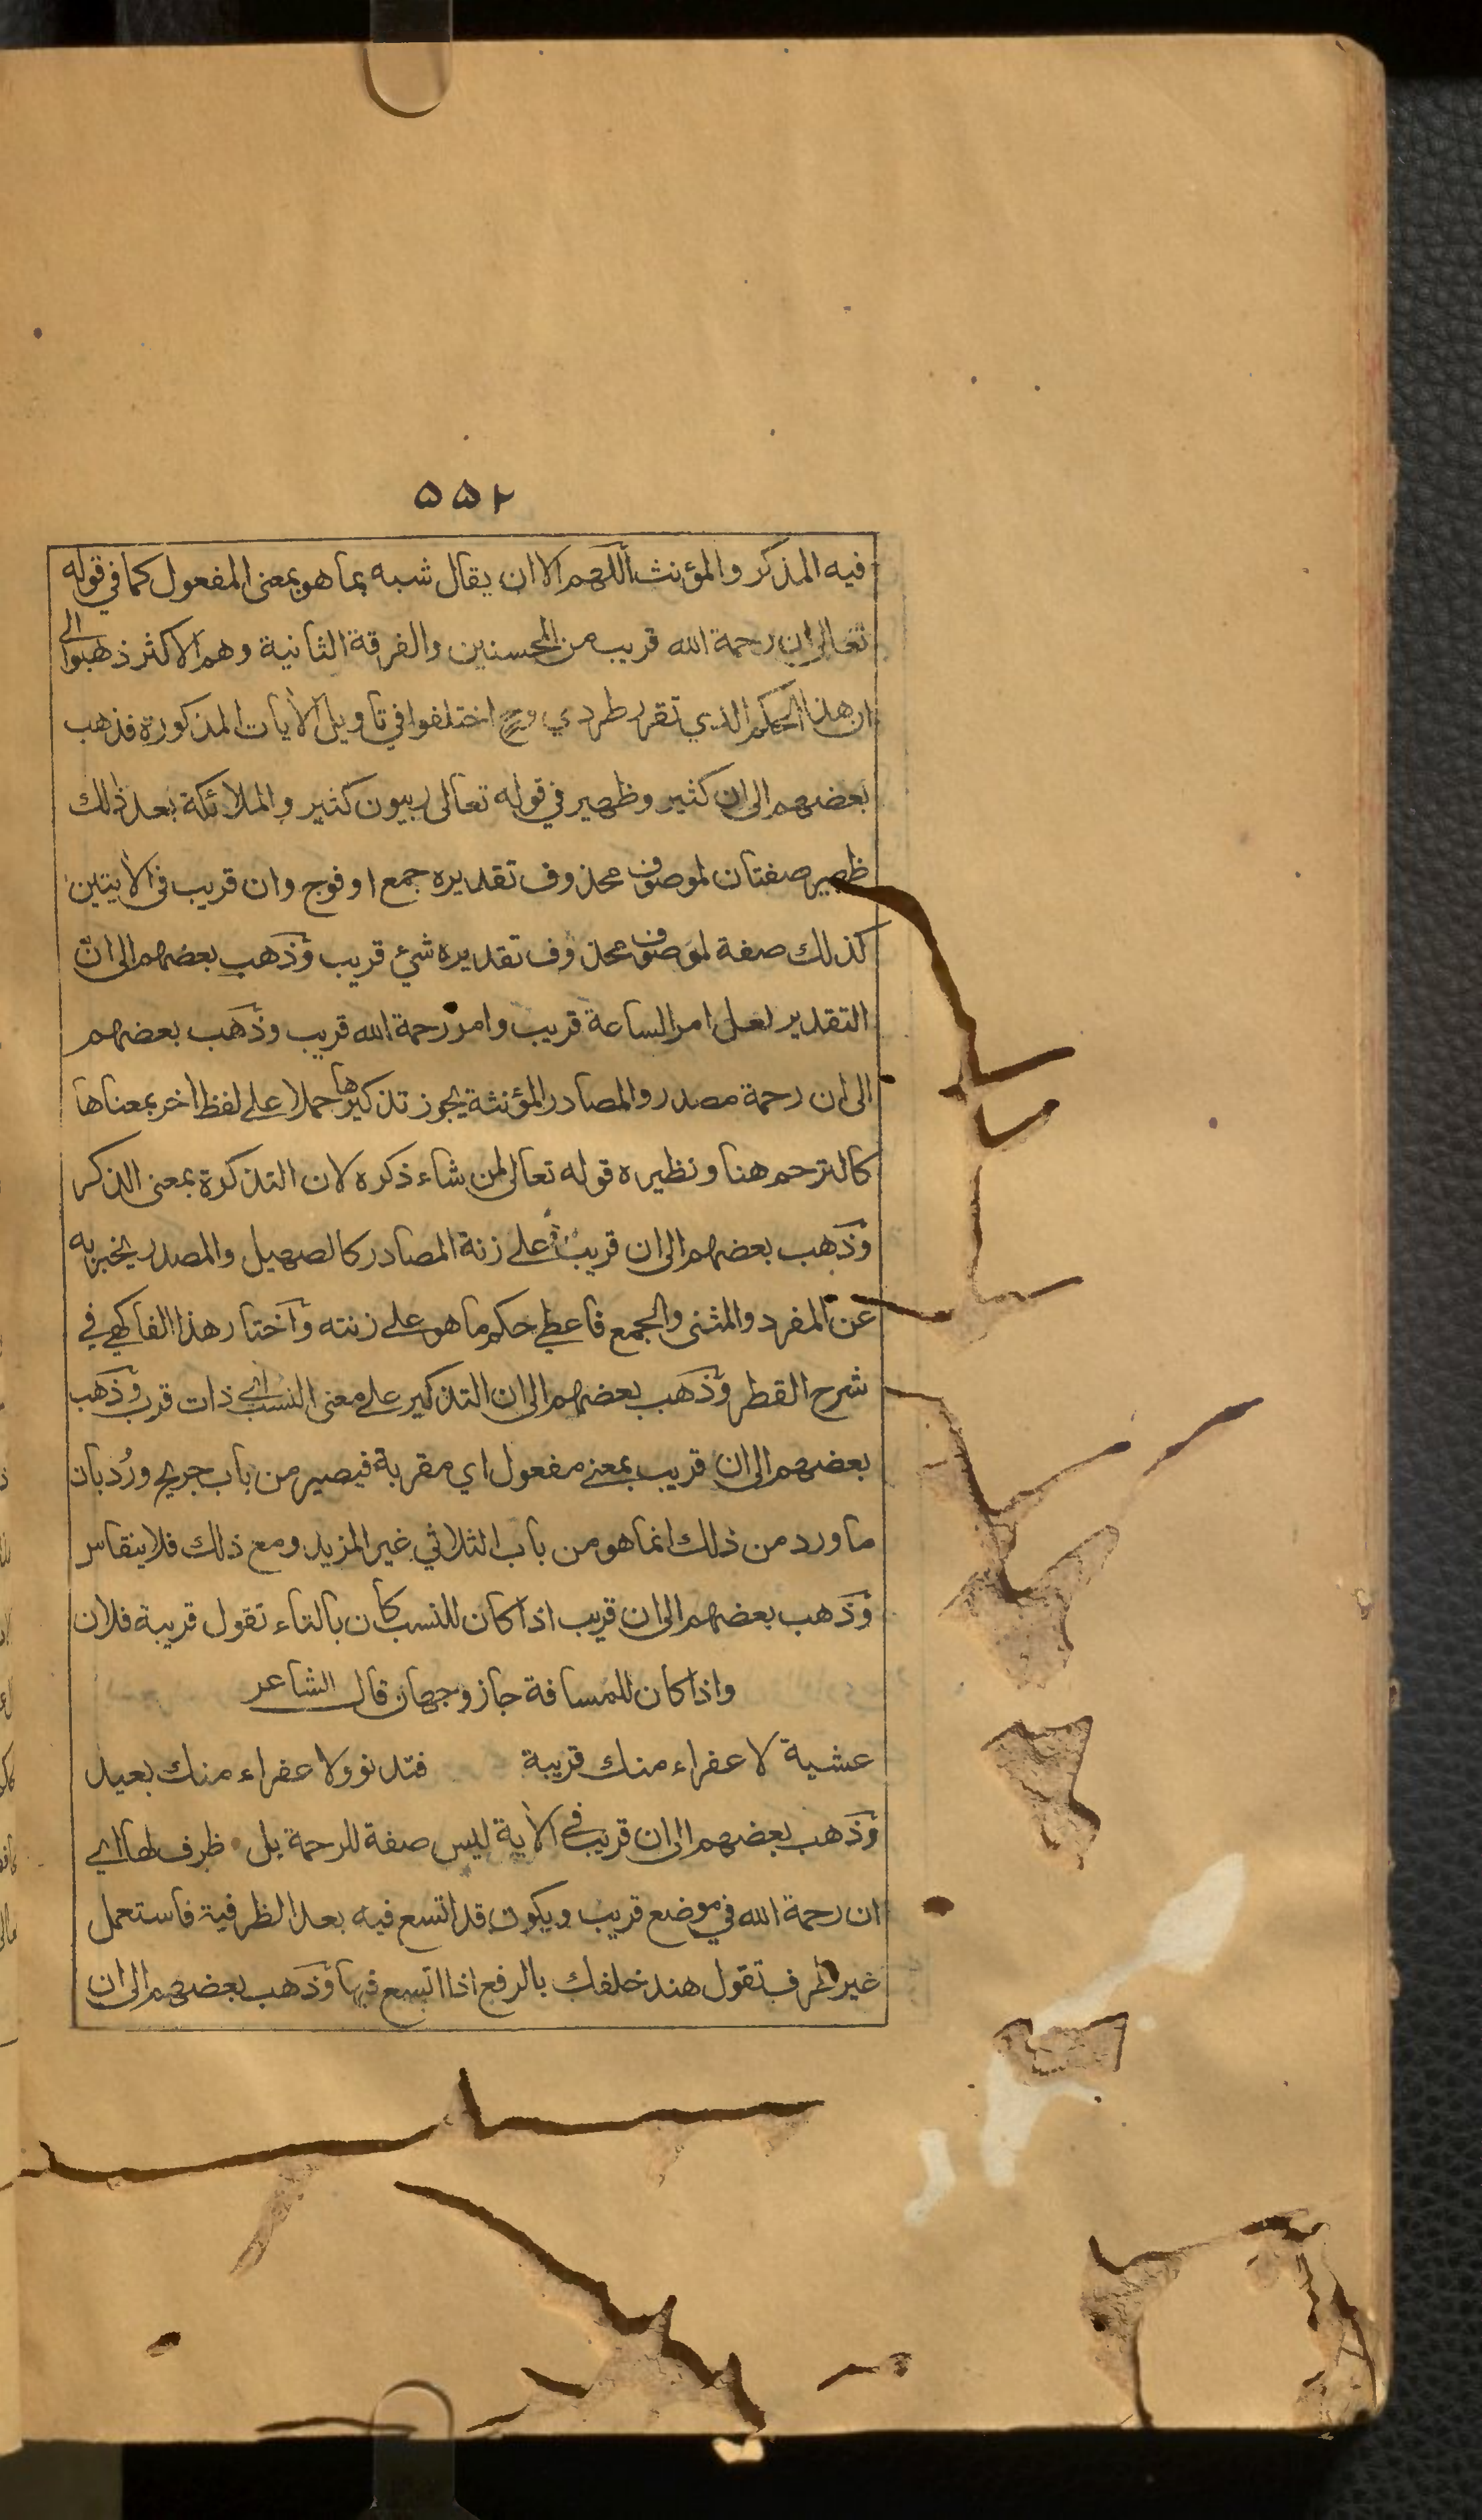 ٥٥٢
فيه المذكر والمؤنث اللهم الا ان يقال شبه بما هو بمعنى المفعول كما في قوله
تعالى ان رحمة الله قريب من المحسنين والفرقة الثانية وهم الاكثر ذهبوا الى
ان هذا الحكم الذي تقرر طردي وح اختلفوا في تاويل الأيات المذكورة فذهب
بعضهم الى ان كثير وظهير في قوله تعالى ربيون كثير والملائكة بعد ذلك
ظهير صفتان لموصوف محذوف تقديره جمع او فوج وان قريب في الأيتين
كذلك صفة لموصوف محذوف تقديره شيء قريب وذهب بعضهم الى ان
التقدير لعل امر الساعة قريب وامر رحمة الله قريب وذهب بعضهم
الى ان رحمة مصدر والمصادر المؤنثة يجوز تذكيرها حملا على لفظ اخر بمعناها
كالترحم هنا ونظيره قوله تعالى لمن شاء ذكره لان التذكرة بمعنى الذكر
وذهب بعضهم الى ان قريب على زنة المصادر كالصهيل والمصدر يخبر به
عن المفرد والمثنى والجمع فاعطي حكم ما هو على زنته واختار هذا الفاكهي في
شرح القطر وذهب بعضهم الى ان التذكير على معنى النسب اي ذات قرب وذهب
بعضهم الى ان قريب بمعنى مفعول اي مقربة فيصير من باب جريح ورُد بان
ما ورد من ذلك انما هو من باب الثلاثي غير المزيد ومع ذلك فلا ينقاس
وذهب بعضهم الى ان قريب اذا كان للنسب كان بالتاء تقول قريبة فلان
واذا كان للمسافة جاز وجهان قال الشاعر
عشية لا عفراء منك قريبة فتدنو ولا عفراء منك بعيد
وذهب بعضهم الى ان قريب في الأية ليس صفة للرحمة بل ظرف لها اي
ان رحمة الله في موضع قريب ويكون قد اتسع فيه بعد الظرفية فاستعمل
غير ظرف تقول هند خلفك بالرفع اذا اتسع فيها وذهب بعضهم الى ان